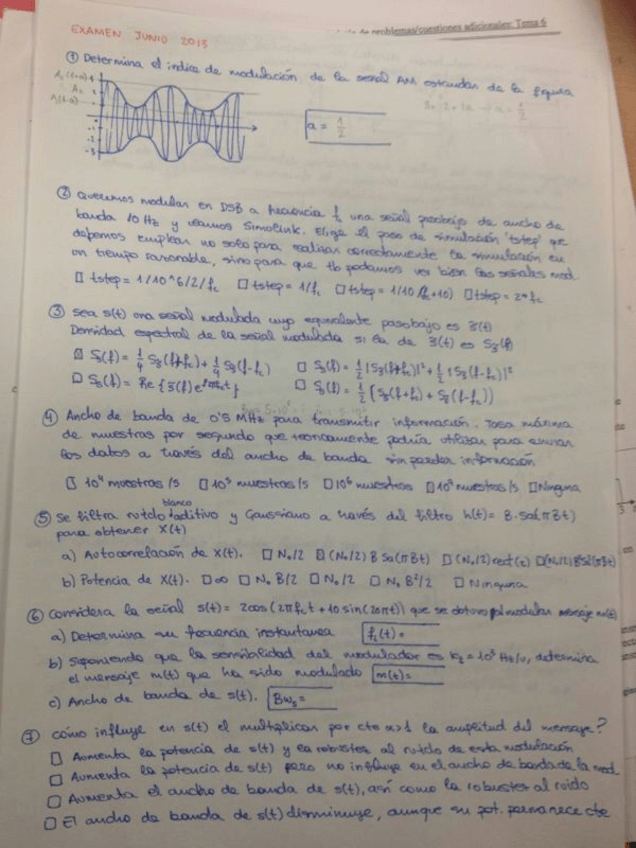 problemas/cuestiones adicionales: Tema 6
EXAMEN JUNIO 2013
① Determina el índice de modulación de la señal AM estandar de la figura
a = 1/2
② Queremos modular en DSB a frecuencia fc una señal pasobajo de ancho de
banda 10 Hz y usamos Simulink. Elige el paso de simulación 'tstep' que
debemos emplear no solo para realizar correctamente la simulación en
un tiempo razonable, sino para que tb podamos ver bien las señales mod.
□ tstep = 1/10^6/2/fc □ tstep = 1/fc □ tstep = 1/10/(fc+10) □ tstep = 2*fc
③ Sea s(t) una señal modulada cuyo equivalente pasobajo es s̃(t)
Densidad espectral de la señal modulada si la de s̃(t) es Ss̃(f)
☒ Ss(f) = 1/4 Ss̃(f+fc) + 1/4 Ss̃(f-fc) □ Ss(f) = 1/2 |Ss̃(f+fc)|² + 1/2 |Ss̃(f-fc)|²
□ Ss(f) = Re{s̃(f)e^j2πfct} □ Ss(f) = 1/2 [Ss̃(f+fc) + Ss̃(f-fc)]
④ Ancho de banda de 0'5 MHz para transmitir información. Tasa máxima
de muestras por segundo que teoricamente podría utilizar para enviar
los datos a través del ancho de banda sin perder información
□ 10⁴ muestras/s □ 10⁵ muestras/s □ 10⁶ muestras □ muestras/s □ Ninguna
⑤ Se filtra ruido blanco aditivo y Gaussiano a través del filtro h(t) = B·Sa(πBt)
para obtener X(t)
a) Autocorrelación de X(t). □ No/2 ☒ (No/2) B Sa(πBt) □ (No/2) rect(z) □ (No/2) B²Sa²(πBt)
b) Potencia de X(t). □ ∞ □ No B/2 □ No/2 □ No B²/2 □ Ninguna
⑥ Considera la señal s(t) = 2cos(2πfct + 10 sin(20πt)) que se obtuvo al modular mensaje m(t)
a) Determina su frecuencia instantanea fi(t) =
b) Suponiendo que la sensibilidad del modulador es kf = 10³ Hz/v, determina
el mensaje m(t) que ha sido modulado m(t) =
c) Ancho de banda de s(t). BWs =
⑦ cómo influye en s(t) el multiplicar por cte α>1 la amplitud del mensaje?
□ Aumenta la potencia de s(t) y la robustez al ruido de esta modulación
□ Aumenta la potencia de s(t) pero no influye en el ancho de banda de la mod
□ Aumenta el ancho de banda de s(t), así como la robustez al ruido
□ El ancho de banda de s(t) disminuye, aunque su pot. permanece cte